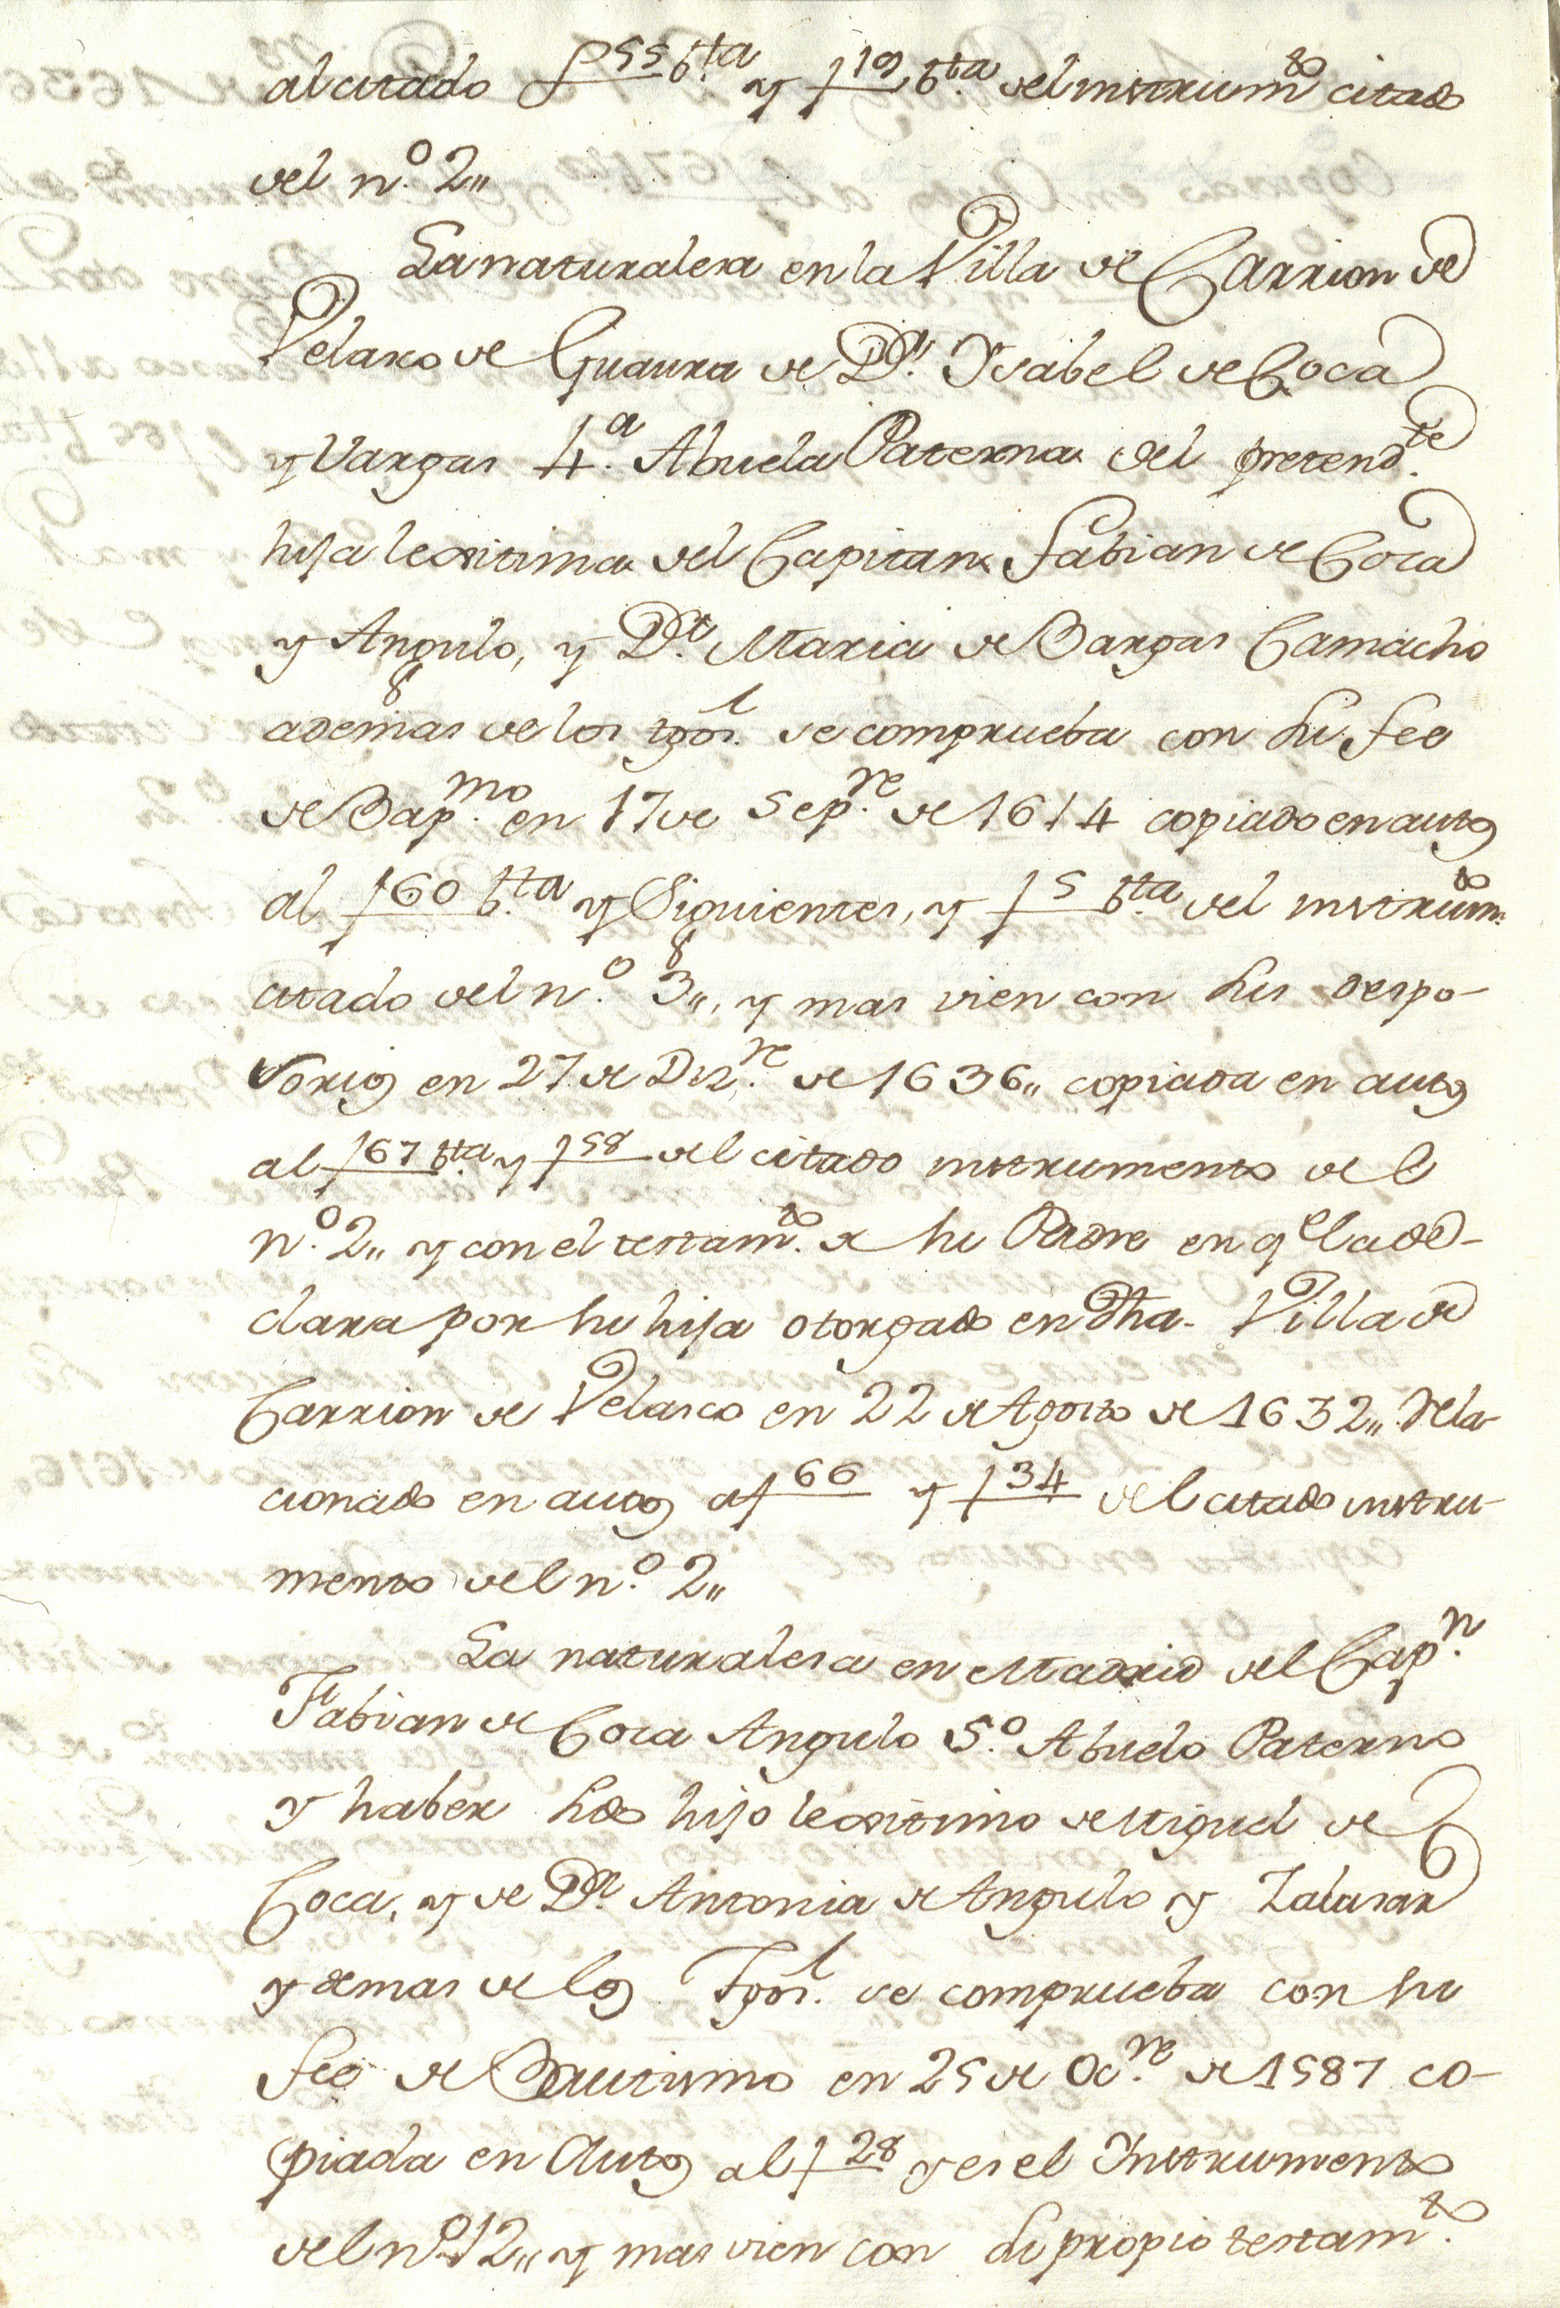 al citado f 55 bta y f 19 bta del instrumto citado
del nº. 2„
La naturalesa en la Villa de Carrion de
Velasco de Guaura de Da. Ysabel de Coca
y Vargas 4.a Abuela Paterna del pretendte.
hija lexitima del Capitan Fabian de Coca
y Angulo, y Da. Maria de Bargas Camacho
ademas de los tgos. se comprueba con su fee
de Bapmo. en 17 de Sepre. de 1614 copiado en autos
al f 60 bta y Siguientes, y f 5 bta del instrumto.
citado del nº. 3„, y mas vien con sus despo-
sorios en 27 de Dizre. de 1636„ copiada en autos
al f 67 bta y f 58 del citado instrumento del
nº. 2„ y con el testamto. de su Padre en qe la de-
clara por su hija otorgado en dha. Villa de
Carrion de Velasco en 22 de Agosto de 1632„ Rela-
cionado en autos a f 66 y f 34 del citado instru-
mento del nº. 2„
La naturalesa en Madrid del Capn.
Fabian de Coca Angulo 5.o Abuelo Paterno
y haber sido hijo lexitimo de Miguel de
Coca, y de Da. Antonia de Angulo y Salasar
y demas de los Tgos. se comprueba con su
fee de Bautismo en 25 de Ocre. de 1587 co-
piada en Autos al f 28 y es el Instrumento
del nº. 12„ y mas vien con su propio testamto.